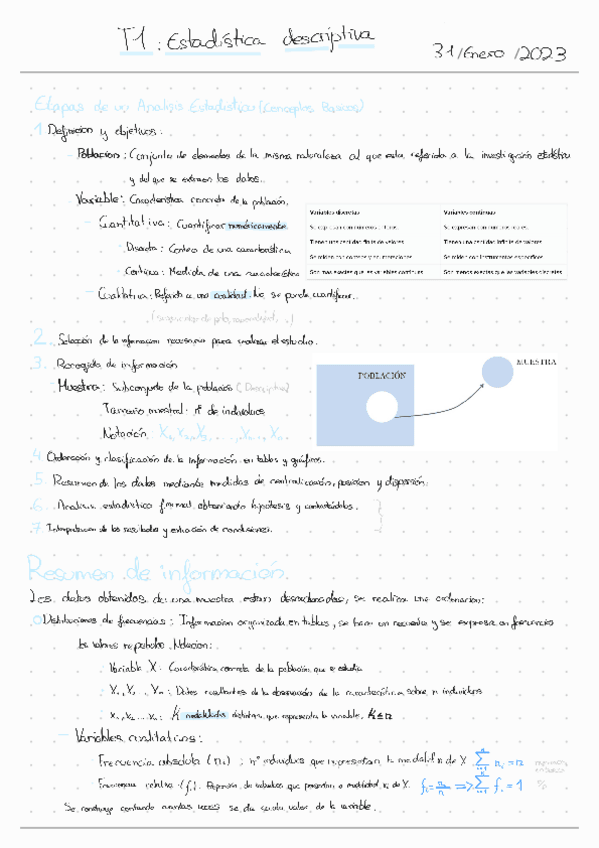 T1: Estadística descriptiva
31/Enero/2023
Etapas de un Analisis Estadístico (Conceptos Basicos)
1 Definicion y objetivos:
Poblacion: Conjunto de elementos de la misma naturaleza al que esta referida a la investigación estadística
y del que se extraen los datos.
Variable: Característica concreta de la población.
Cuantitativa: Cuantificar numéricamente
Discreta: Conteo de una característica
Continua: Medida de una característica
Cualitativa: Referida a una cualidad. No se puede cuantificar.
Variables discretas
Variables continuas
Se expresan con números
Se expresan con números reales
Tienen una cantidad finita de valores
Tienen una cantidad infinita de valores
Se miden con
Se miden con instrumentos específicos
Son más exactas que las variables continuas
Son menos exactas que las variables discretas
2. Selección de la informacion necesaria para realizar el estudio.
3. Recogida de información
Muestra: Subconjunto de la poblacion (Descriptiva)
Tamaño muestral: nº de individuos
Notación: X₁, X₂, X₃, ..., Xₙ
POBLACIÓN
MUESTRA
4 Ordenación y clasificación de la información en tablas y gráficos.
5. Resumen de los datos mediante medidas de centralización, posicion y dispersión.
6. Analisis estadístico formal obteniendo hipótesis y contrastándolas.
7 Interpretacion de los resultados y extracción de conclusiones.
Resumen de información.
Los datos obtenidos de una muestra estan desordenados, se realiza una ordenacion:
Distribuciones de frecuencias: Informacion organizada en tablas, se hace un recuento y se expresa en frecuencia
los valores repetidos. Notacion:
Variable X: Característica concreta de la población que se estudia
X₁, X₂ ... Xₙ: Datos resultantes de la observación de la característica sobre n individuos
x₁, x₂ ... xₖ: K modalidades distintas que representa la variable. K≤n
Variables cualitativas:
Frecuencia absoluta (nᵢ): nº individuos que presentan la modalidad xᵢ de X. ∑ nᵢ = n
Frecuencia relativa (fᵢ). Proporción de individuos que presentan la modalidad xᵢ de X. fᵢ = nᵢ/n => ∑ fᵢ = 1 %
Se construye contando cuantas veces se da cada valor de la variable.